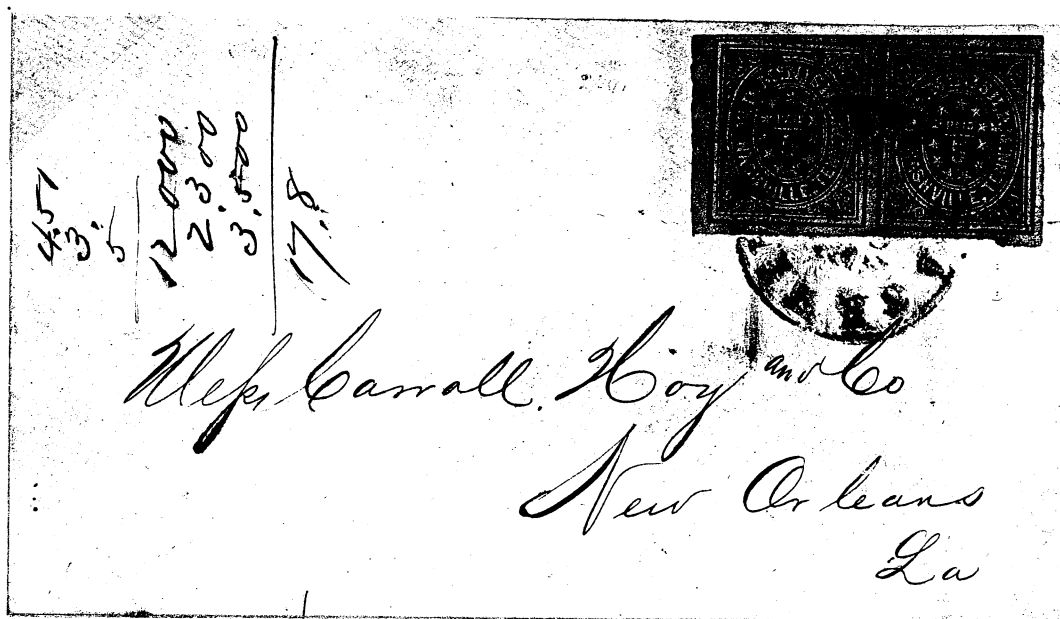 4.51
3.
5
12 000
2 3 00
3.500
17.8
Mess Carroll. Hoy and Co
New Orleans
La